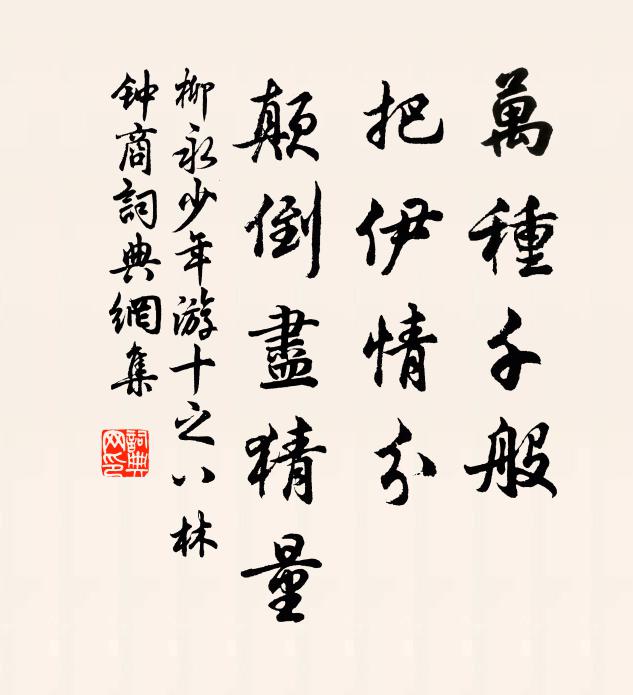 萬種千般
把伊情分
顛倒盡猜量
柳永少年游十之八林
鈡商詞典網集
詞典
网印